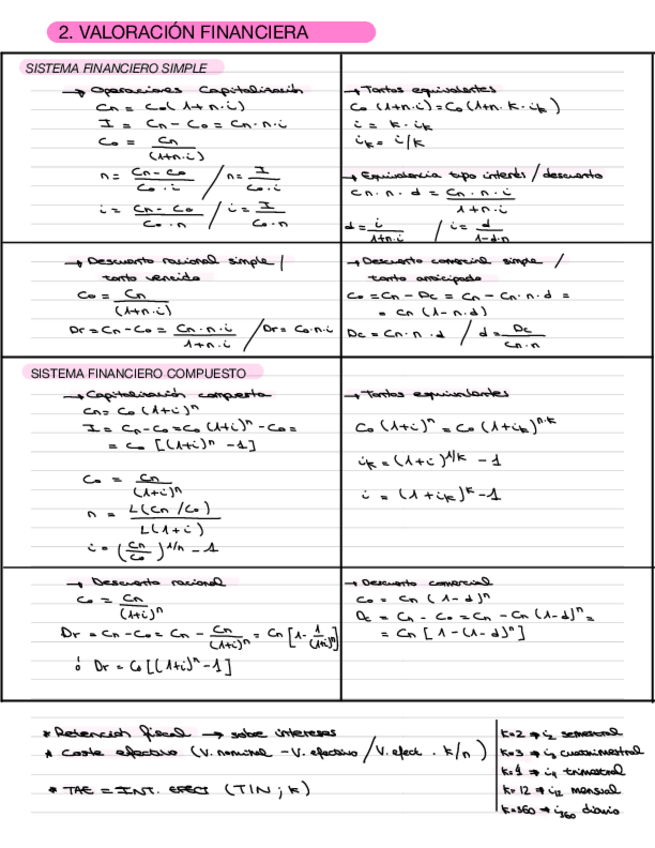 2. VALORACIÓN FINANCIERA
SISTEMA FINANCIERO SIMPLE
→ Operaciones Capitalización
Cn = Co (1+n·i)
I = Cn - Co = Cn·n·i
Co = Cn / (1+n·i)
n = Cn - Co / Co·i / n = I / Co·i
i = Cn - Co / Co·n / i = I / Co·n
→ Tantos equivalentes
Co (1+n·i) = Co (1+n·k·ik)
i = k·ik
ik = i/k
→ Equivalencia tipo interés / descuento
Cn·n·d = Cn·n·i / 1+n·i
d = i / 1+n·i / i = d / 1-d·n
→ Descuento racional simple /
tanto vencido
Co = Cn / (1+n·i)
Dr = Cn - Co = Cn·n·i / 1+n·i / Dr = Co·n·i
→ Descuento comercial simple /
tanto anticipado
Co = Cn - Dc = Cn - Cn·n·d =
= Cn (1-n·d)
Dc = Cn·n·d / d = Dc / Cn·n
SISTEMA FINANCIERO COMPUESTO
→ Capitalización compuesta
Cn = Co (1+i)ⁿ
I = Cn - Co = Co (1+i)ⁿ - Co =
= Co [(1+i)ⁿ - 1]
Co = Cn / (1+i)ⁿ
n = L(Cn/Co) / L(1+i)
i = (Cn/Co)^1/n - 1
→ Tantos equivalentes
Co (1+i)ⁿ = Co (1+ik)^n·k
ik = (1+i)^1/k - 1
i = (1+ik)^k - 1
→ Descuento racional
Co = Cn / (1+i)ⁿ
Dr = Cn - Co = Cn - Cn / (1+i)ⁿ = Cn [1 - 1/(1+i)ⁿ]
ó Dr = Co [(1+i)ⁿ - 1]
→ Descuento comercial
Co = Cn (1-d)ⁿ
Dc = Cn - Co = Cn - Cn (1-d)ⁿ =
= Cn [1-(1-d)ⁿ]
* Retención fiscal → sobre intereses
* Coste efectivo (V. nominal - V. efectivo / V. efect. · k/n)
* TAE = INT. EFECT (TIN ; k)
k=2 → i2 semestral
k=3 → i3 cuatrimestral
k=4 → i4 trimestral
k=12 → i12 mensual
k=360 → i360 diario